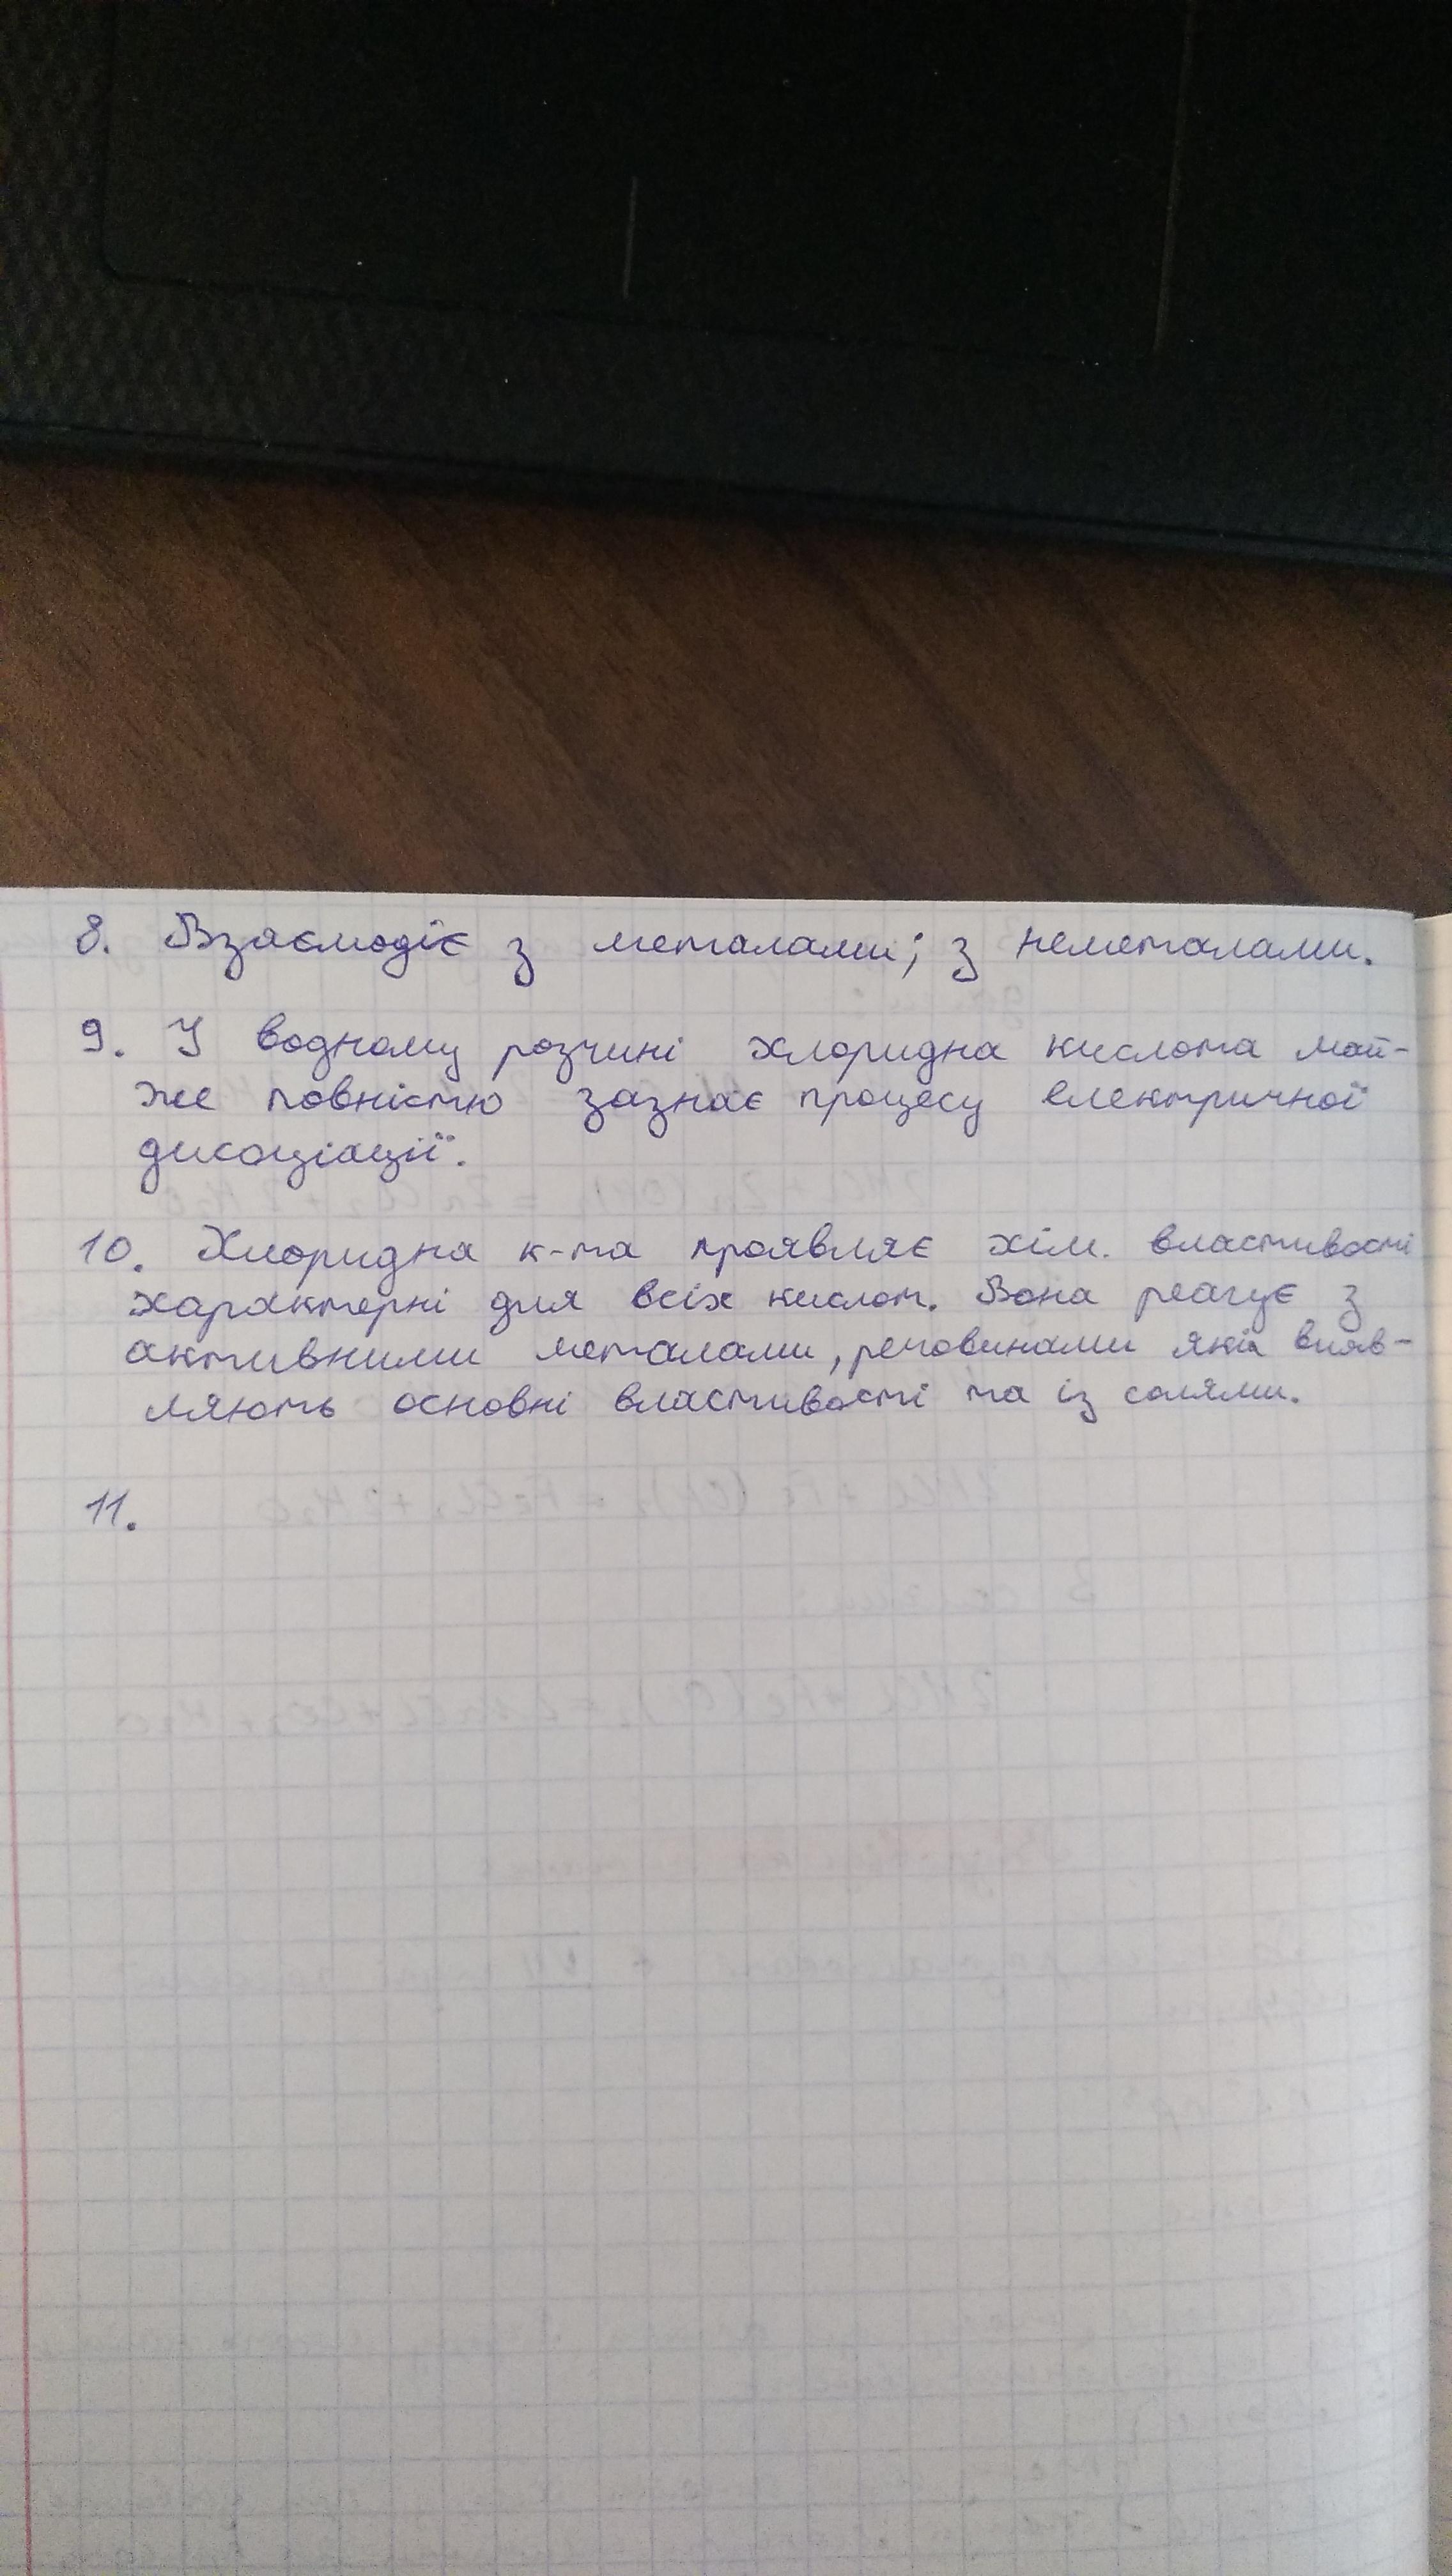 8. Взаємодіє з металами; з неметалами.
9. У водному розчині хлоридна кислота май-
же повністю зазнає процесу електричної
дисоціації.
10. Хлоридна к-та проявляє хім. властивості
характерні для всіх кислот. Вона реагує з
активними металами, речовинами які вияв-
ляють основні властивості та із солями.
11.